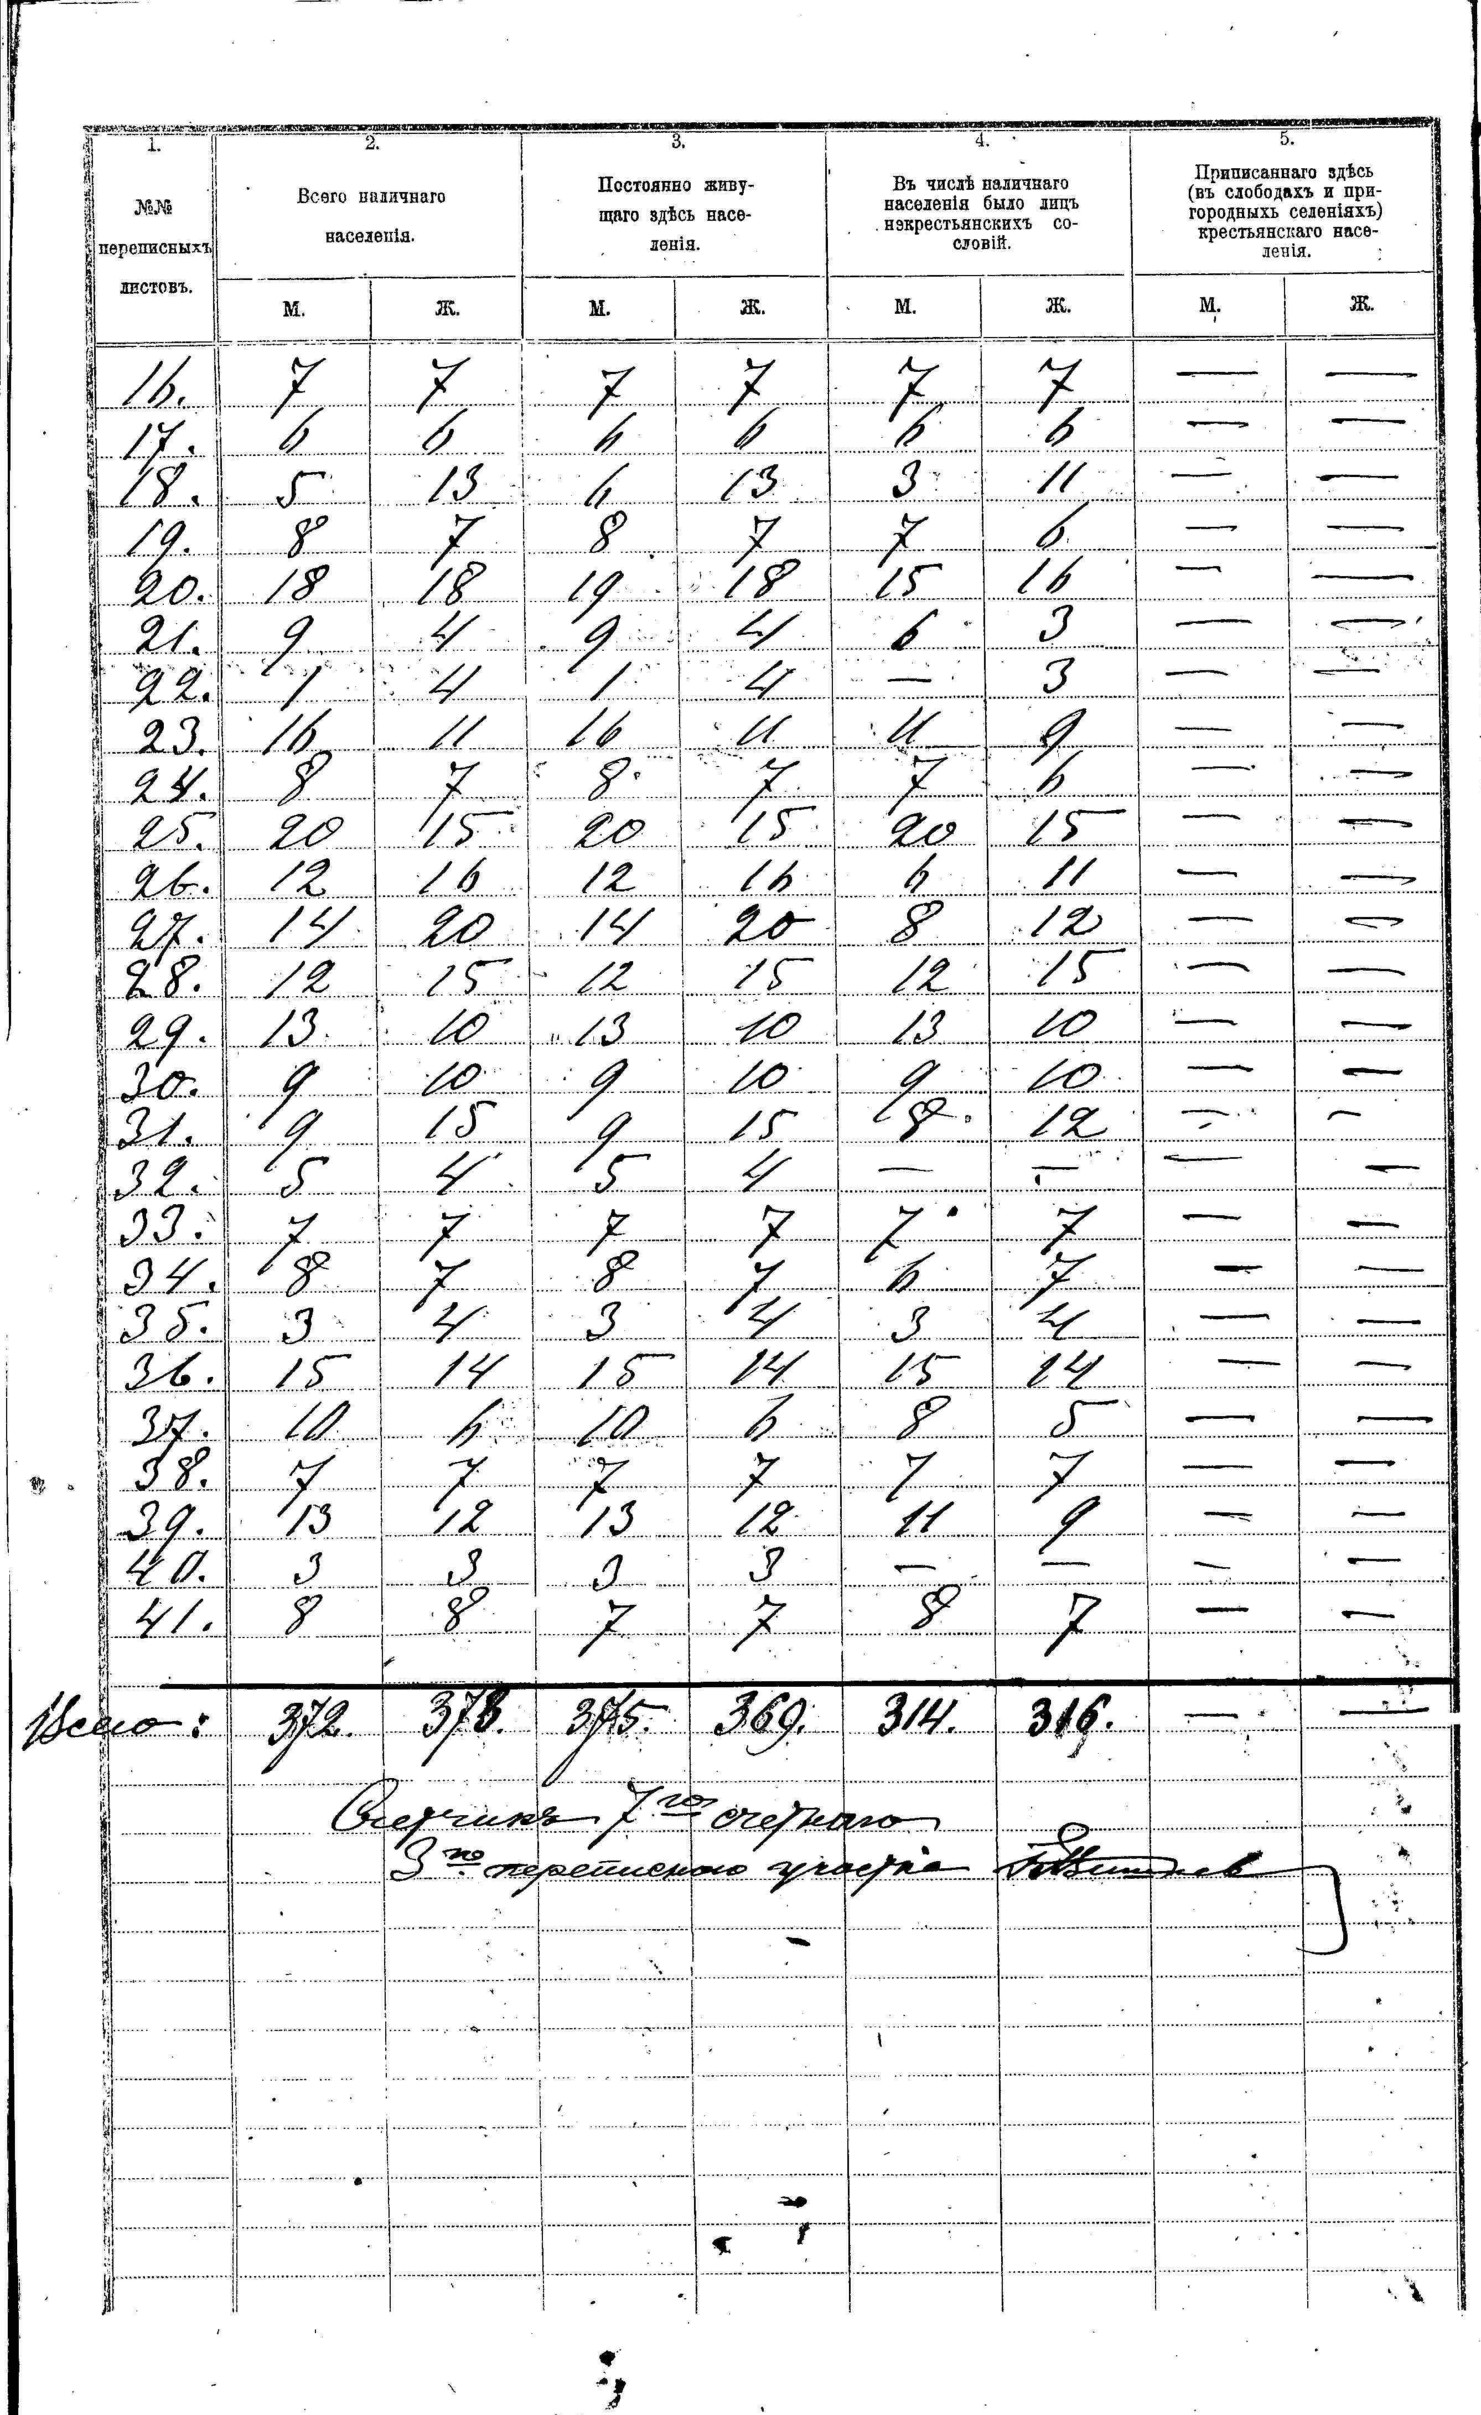 1. 2. 3. 4. 5.
№№ переписныхъ листовъ.
Всего наличнаго населенія.
Постоянно живущаго здѣсь населенія.
Въ числѣ наличнаго населенія было лицъ нэкрестьянскихъ сословій.
Приписаннаго здѣсь (въ слободахъ и пригородныхъ селеніяхъ) крестьянскаго населенія.
М. Ж. М. Ж. М. Ж. М. Ж.
16. 7 7 7 7 7 7 — —
17. 6 6 6 6 6 6 — —
18. 5 13 6 13 3 11 — —
19. 8 7 8 7 7 6 — —
20. 18 18 19 18 15 16 — —
21. 9 4 9 4 6 3 — —
22. 1 4 1 4 — 3 — —
23. 16 11 16 11 11 9 — —
24. 8 7 8 7 7 6 — —
25. 20 15 20 15 20 15 — —
26. 12 16 12 16 6 11 — —
27. 14 20 14 20 8 12 — —
28. 12 15 12 15 12 15 — —
29. 13 10 13 10 13 10 — —
30. 9 10 9 10 9 10 — —
31. 9 15 9 15 8 12 — —
32. 5 4 5 4 — — — —
33. 7 7 7 7 7 7 — —
34. 8 7 8 7 6 7 — —
35. 3 4 3 4 3 4 — —
36. 15 14 15 14 15 14 — —
37. 10 6 10 6 8 5 — —
38. 7 7 7 7 7 7 — —
39. 13 12 13 12 11 9 — —
40. 3 3 3 3 — — — —
41. 8 8 7 7 8 7 — —
Всего: 372. 378. 375. 369. 314. 316. — —
Счетчикъ 7го счетнаго
3го переписного участка